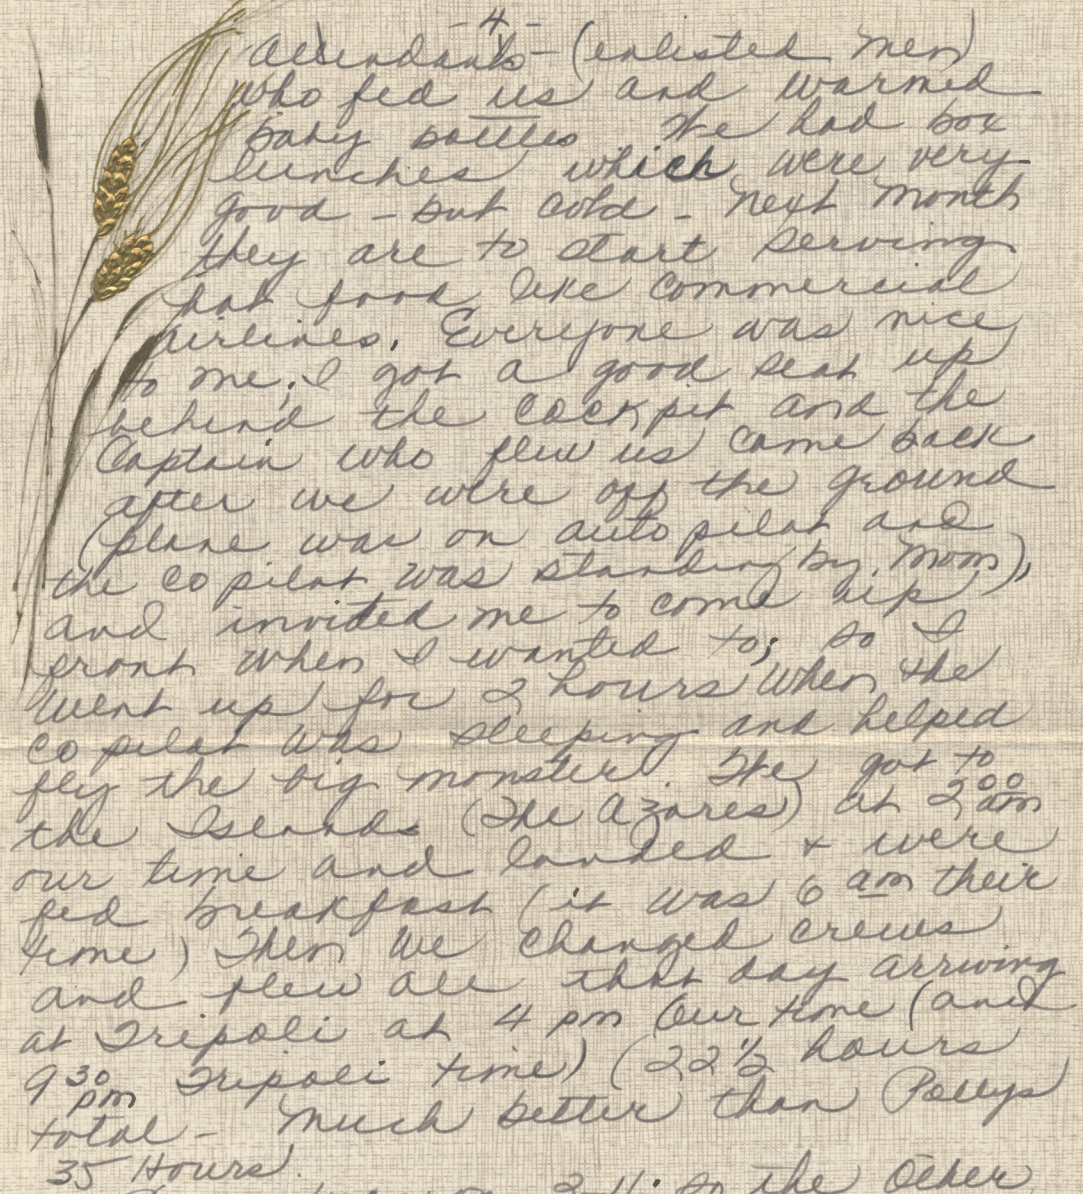 - 4 -
attendants - (enlisted men)
who fed us and warmed
baby bottles. We had box
lunches which were very
good - but cold - Next month
they are to start serving
hot food like commercial
airlines. Everyone was nice
to me; I got a good seat up
behind the cockpit and the
Captain who flew us came back
after we were off the ground
(plane was on auto pilot and
the co pilot was standing by, Mom),
and invited me to come up
front when I wanted to; so I
went up for 2 hours when the
co pilot was sleeping and helped
fly the big monster. We got to
the Islands (The Azores) at 2 00 am
our time and landed & were
fed breakfast (it was 6 am their
time) Then we changed crews
and flew all that day arriving
at Tripoli at 4 pm Our time (and
9 30 pm Tripoli time) (22 1/2 hours
total - Much better than Pollys
35 Hours!
so the Other